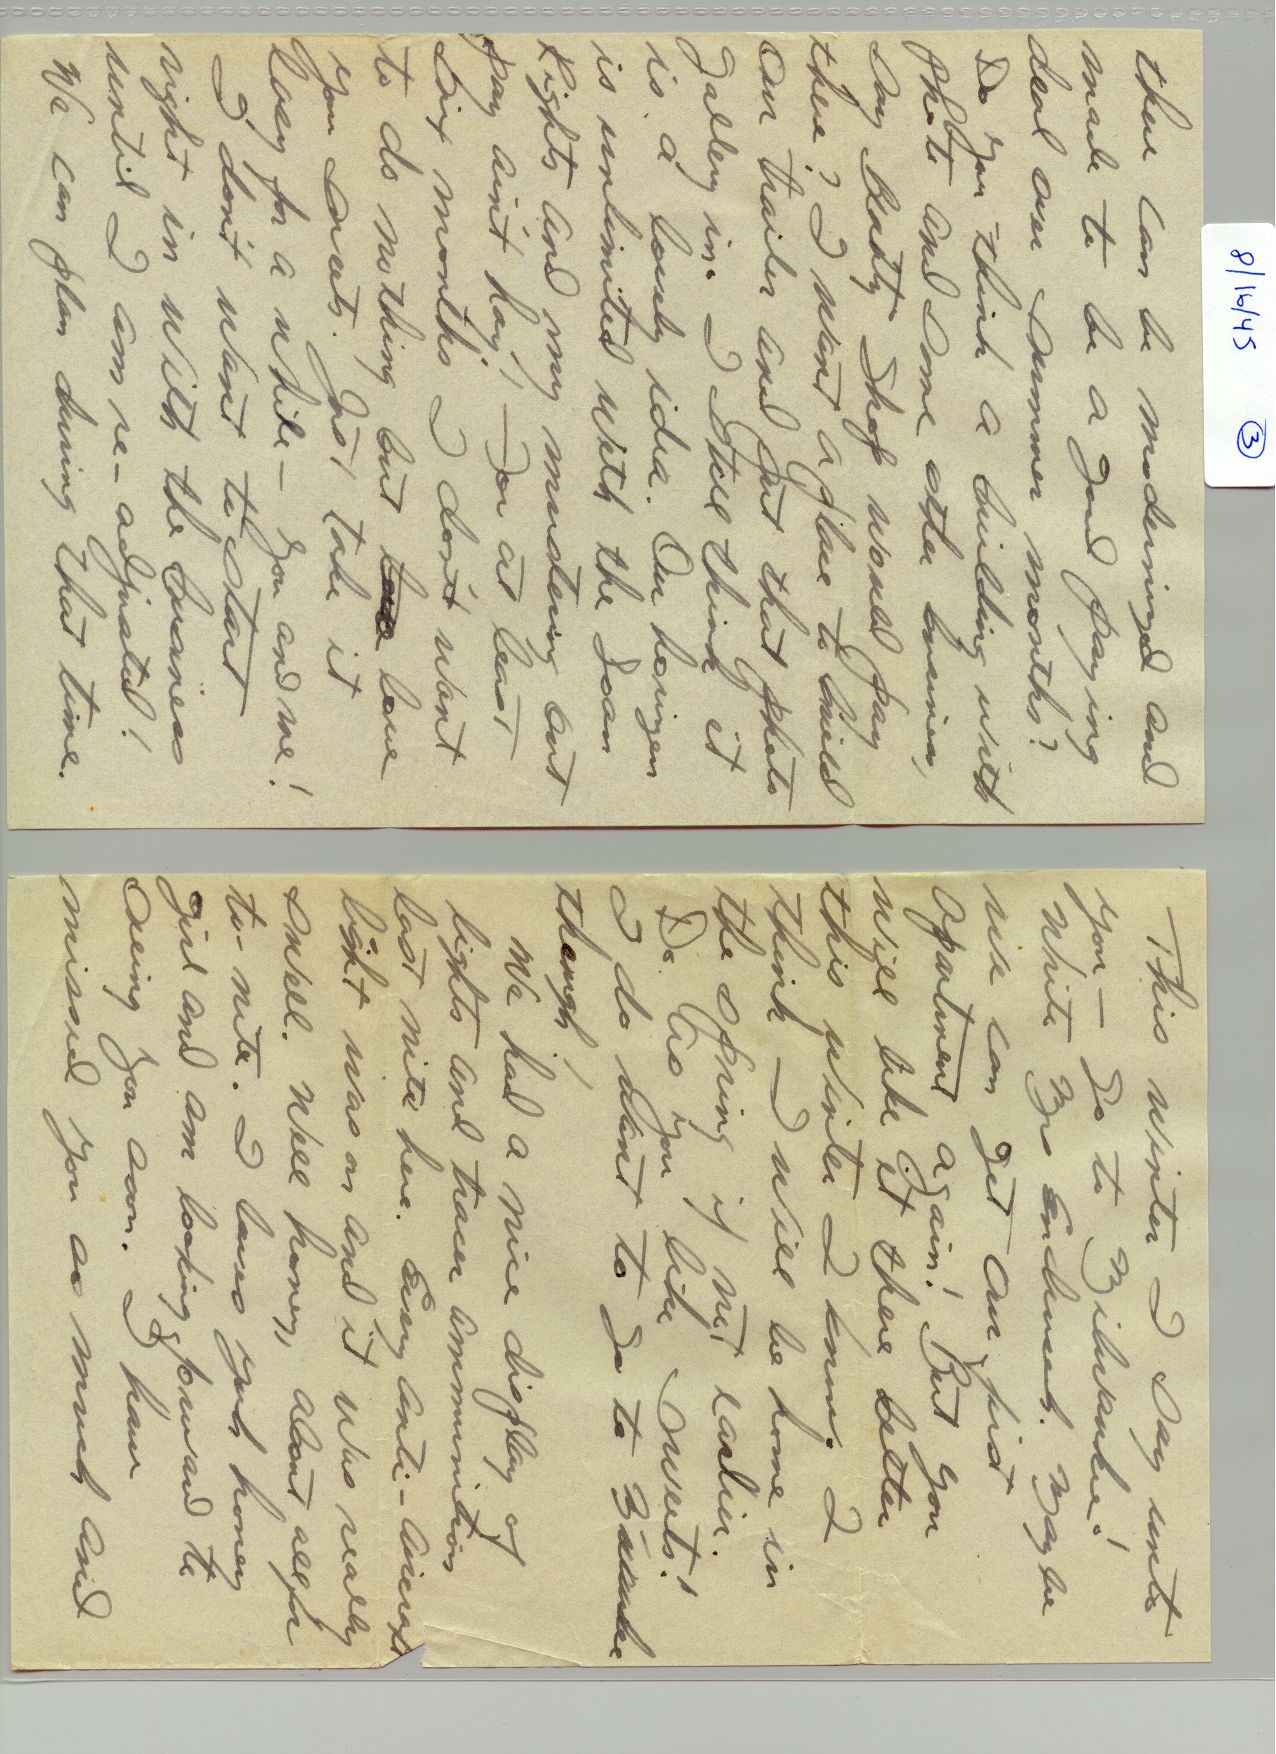 8/16/45 ③
there can be modernized and
made to be a good paying
deal over summer months?
Do you think a building with
photo and some other business,
say Beauty Shop would pay
there? I want a place to build
our trailer and put that photo
gallery in. I still think it
is a lovely idea. Our horizon
is unlimited with the Loan
Rights and my mustering out
pay ain't hay! – For at least
six months I don't want
to do nothing but love
you sweets. Just take it
easy for a while – you and me!
I don't want to start
right in with the business
until I am re-adjusted!
We can plan during that time.
This winter I say unto
you – go to Milwaukee!
White Mrs Enchuest. Maybe
we can get our first
apartment again! But you
will like it there better
this winter I know. I
think I will be home in
the spring if not earlier.
Do as you like sweets!
I do want to go to
though!
We had a nice display of
lights and tracer ammunition
last nite here. Every anti-aircraft
light was on and it was really
swell. Well honey, about all for
to-nite. I loves youh honey
girl and am looking forward to
seeing you soon. I have
missed you so much and